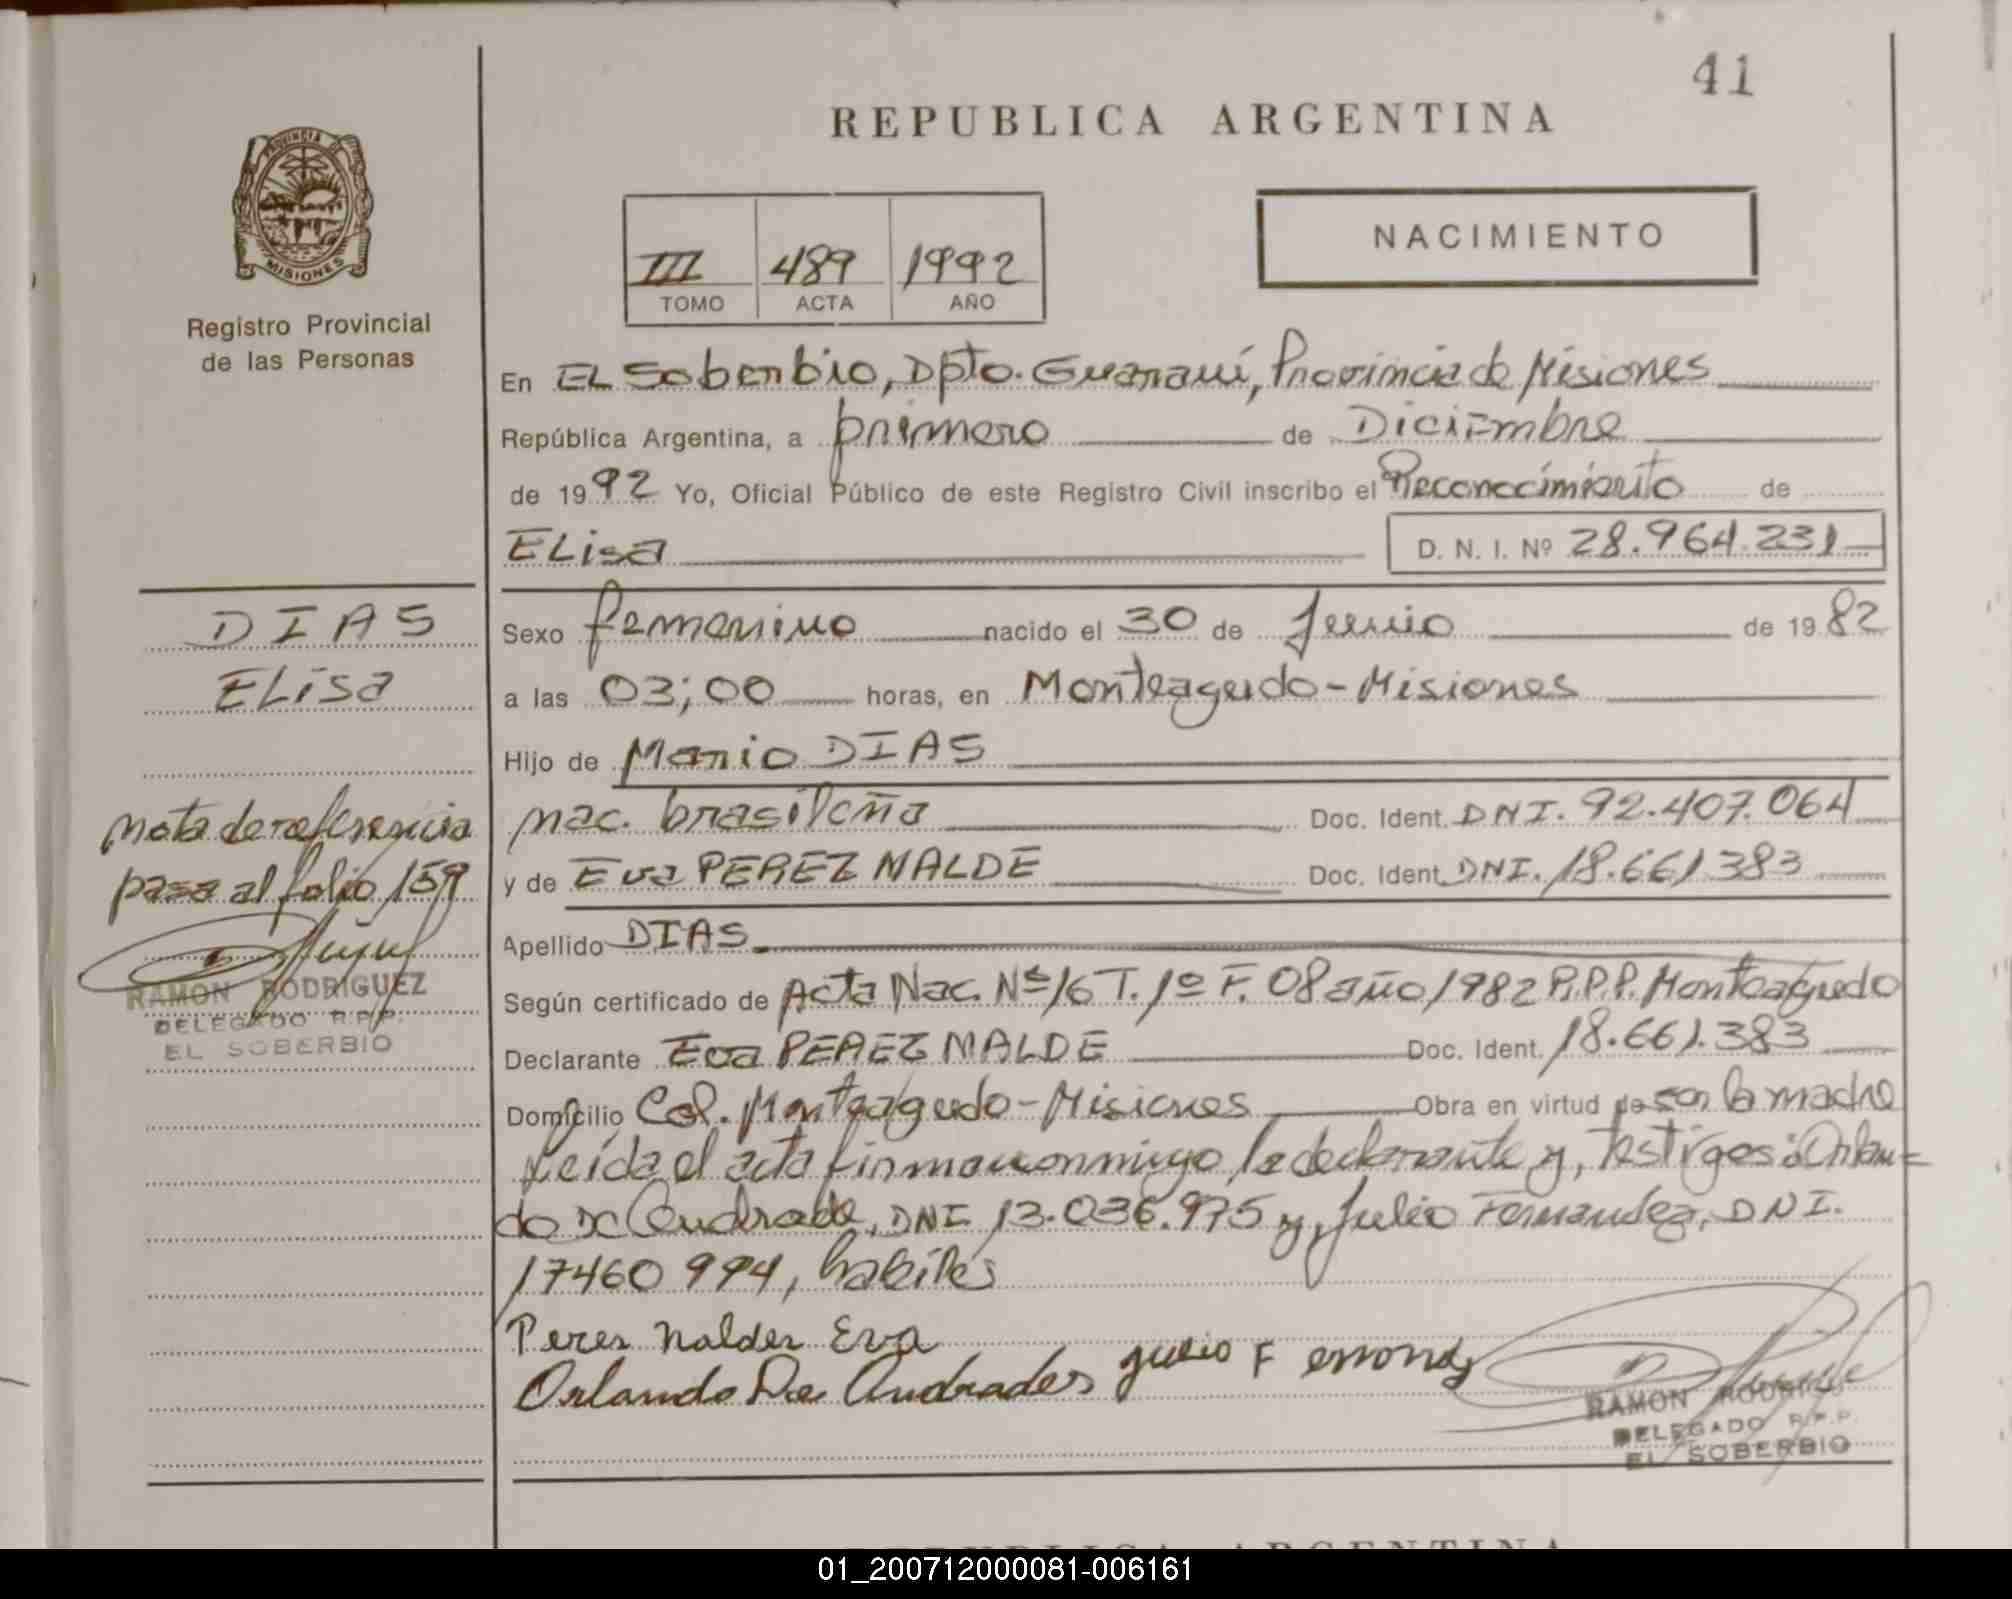 41
REPUBLICA ARGENTINA
PROVINCIA DE
MISIONES
Registro Provincial
de las Personas
III 489 1992
TOMO ACTA AÑO
NACIMIENTO
En EL Soberbio, Dpto. Guaraní, Provincia de Misiones
República Argentina, a primero de Diciembre
de 1992 Yo, Oficial Público de este Registro Civil inscribo el Reconocimiento de
ELisa D. N. I. Nº 28.964.231
DIAS
ELisa
Nota de referencia
pasa al folio 159
RAMON RODRIGUEZ
DELEGADO R.P.P.
EL SOBERBIO
Sexo femenino nacido el 30 de Junio de 1982
a las 03;00 horas, en Monteagudo-Misiones
Hijo de Mario DIAS
nac. brasileña Doc. Ident. DNI. 92.407.064
y de Eva PEREZ MALDE Doc. Ident. DNI. 18.661.383
Apellido DIAS.
Según certificado de Acta Nac. Nº 16 T. 1º F. 08 año 1982 R.P.P. Monteagudo
Declarante Eva PEREZ MALDE Doc. Ident. 18.661.383
Domicilio Col. Monteagudo-Misiones Obra en virtud de ser la madre
Leída el acta firman conmigo la declarante y, testigos: Orlan=
do De Andrade, DNI 13.036.975 y, Julio Fernandez, DNI.
17460994, habiles
Peres Nalder Eva
Orlando De Andrades Julio F
RAMON RODRIGUEZ
DELEGADO R.P.P.
EL SOBERBIO
REPUBLICA ARGENTINA
01_200712000081-006161